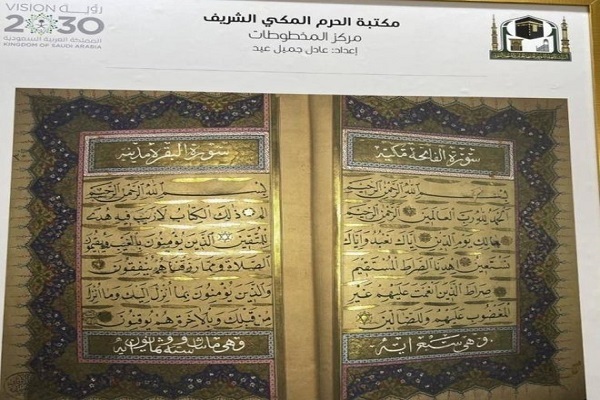 VISION رؤية
2030
المملكة العربية السعودية
KINGDOM OF SAUDI ARABIA
مكتبة الحرم المكي الشريف
مركز المخطوطات
إعداد: عادل جميل عيد
سورة الفاتحة مكية
بسم الله الرحمن الرحيم
الحمد لله رب العالمين الرحمن الرحيم
مالك يوم الدين اياك نعبد واياك
نستعين اهدنا الصراط المستقيم
صراط الذين انعمت عليهم غير
المغضوب عليهم ولا الضالين
وهي سبع اية
سورة البقرة مدنية
بسم الله الرحمن الرحيم
الم ذلك الكتاب لا ريب فيه هدى
للمتقين الذين يؤمنون بالغيب ويقيمون
الصلاة ومما رزقناهم ينفقون
والذين يؤمنون بما انزل اليك وما انزل
من قبلك وبالاخرة هم يوقنون
وهي مأتان وست وثمانون اية